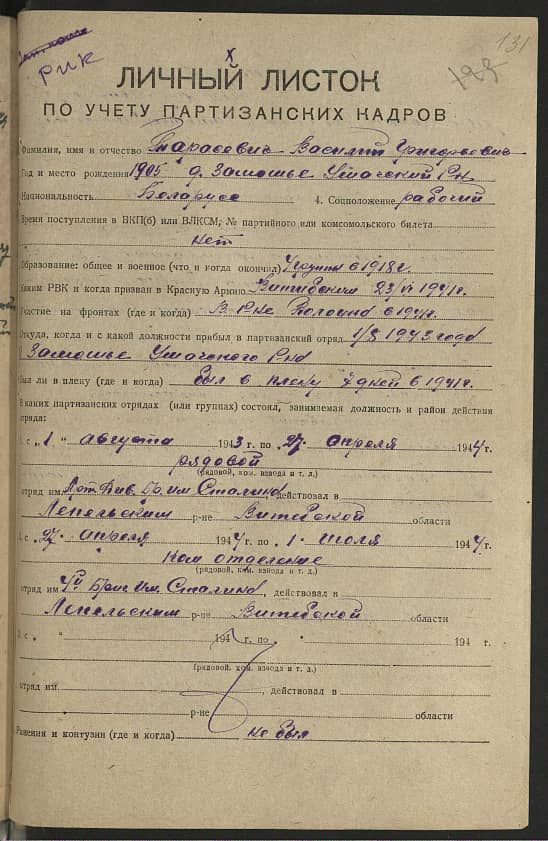 131
РИК
ЛИЧНЫЙ ЛИСТОК
ПО УЧЕТУ ПАРТИЗАНСКИХ КАДРОВ
Фамилия, имя и отчество Тарасевич Василий Григорьевич
Год и место рождения 1905 д. Замошье Ушачский Р-н
Национальность Беларусс 4. Соцположение рабочий
Время поступления в ВКП(б) или ВЛКСМ, № партийного или комсомольского билета
нет
Образование: общее и военное (что и когда окончил) 4 группы в 1918 г.
Каким РВК и когда призван в Красную Армию Витебским 23/VI 1941 г.
Участие на фронтах (где и когда) В р-не Полоцка в 1941 г.
Откуда, когда и с какой должности прибыл в партизанский отряд 1/8 1943 года
Замошье Ушачского р-на
Был ли в плену (где и когда) был в плену 7 дней в 1941 г.
В каких партизанских отрядах (или группах) состоял, занимаемая должность и район действия
отряда:
с „1" августа 1943 г. по 27 апреля 1944 г.
рядовой
(рядовой, ком. взвода и т. д.)
отряд им. Арт. Див. Бр. им Сталина, действовал в
Лепельским р-не Витебской области
с „27" апреля 1944 г. по 1 июля 1944 г.
Ком отделение
(рядовой, ком. взвода и т. д.)
отряд им. Бриг Им. Сталина, действовал в
Лепельским р-не Витебской области
с „ " 194 г. по 194 г.
(рядовой, ком. взвода и т. д.)
отряд им. , действовал в
р-не области
Ранения и контузии (где и когда) не был